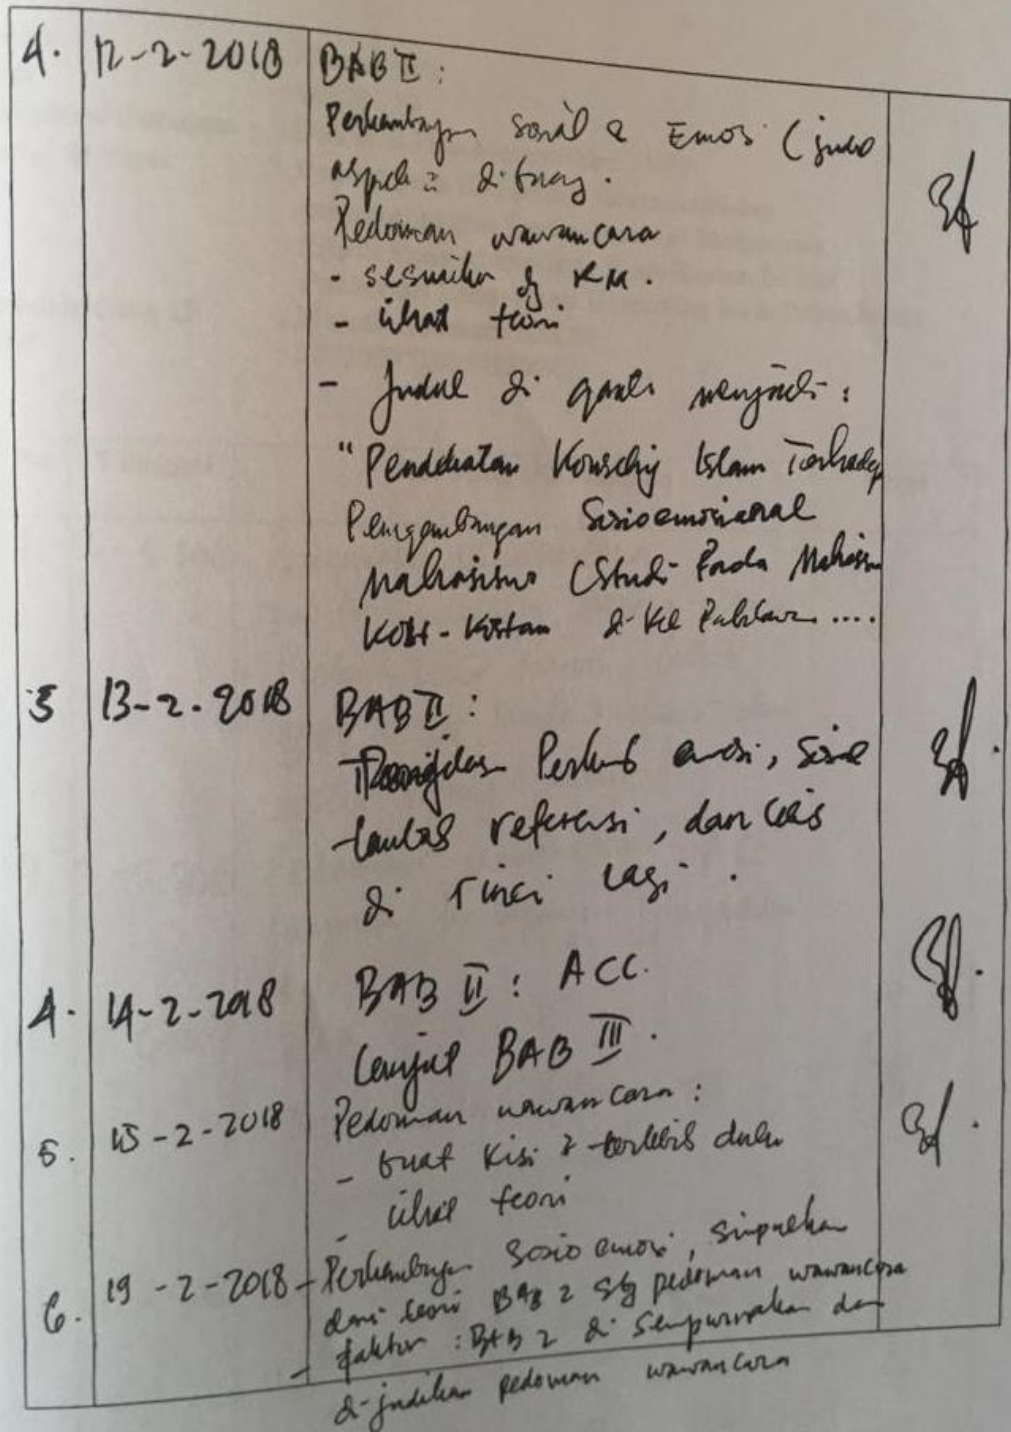 4. 12-2-2018 BAB II :
Perkembangan sosial & Emosi (
aspek 2 di
Pedoman wawancara
- sesuaikan dg RM.
- lihat teori
- Judul di ganti menjadi :
"Pendekatan Konseling Islam Terhadap
Pengembangan Sosioemosional
Mahasiswa (Studi Pada Mahasiswa
Kost-Kostan di Kel Pahlawan ....
3 13-2-2018 BAB II :
Perkemb emosi, sosial
referensi, dan
di rinci lagi .
4. 14-2-2018 BAB II : ACC.
Lanjut BAB III .
5. 15-2-2018 Pedoman wawancara :
- buat Kisi 2 terlebih dulu
- lihat teori
6. 19-2-2018 - Perkembangan Sosio emosi, simpulkan
dari teori BAB 2 sbg pedoman wawancara
- faktor : BAB 2 di sempurnakan dan
di-jadikan pedoman wawancara